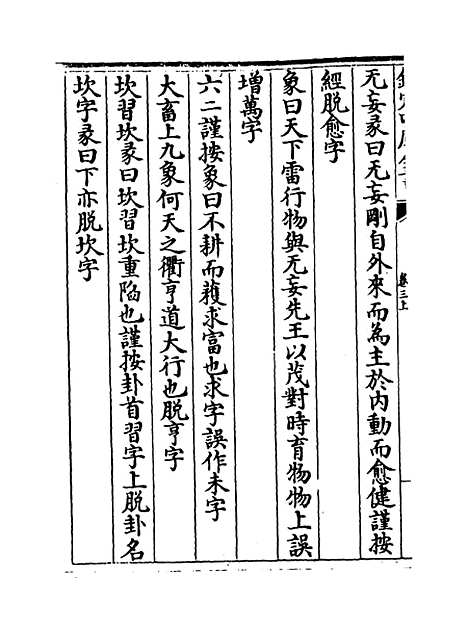 欽定四庫全書
卷三上
无妄彖曰无妄剛自外來而為主於内動而愈健謹按
經脱愈字
象曰天下雷行物與无妄先王以茂對時育物物上誤
增萬字
六二謹按象曰不耕而穫求富也求字誤作未字
大畜上九象何天之衢亨道大行也脱亨字
坎習坎彖曰坎習坎重陷也謹按卦首習字上脱卦名
坎字彖曰下亦脱坎字